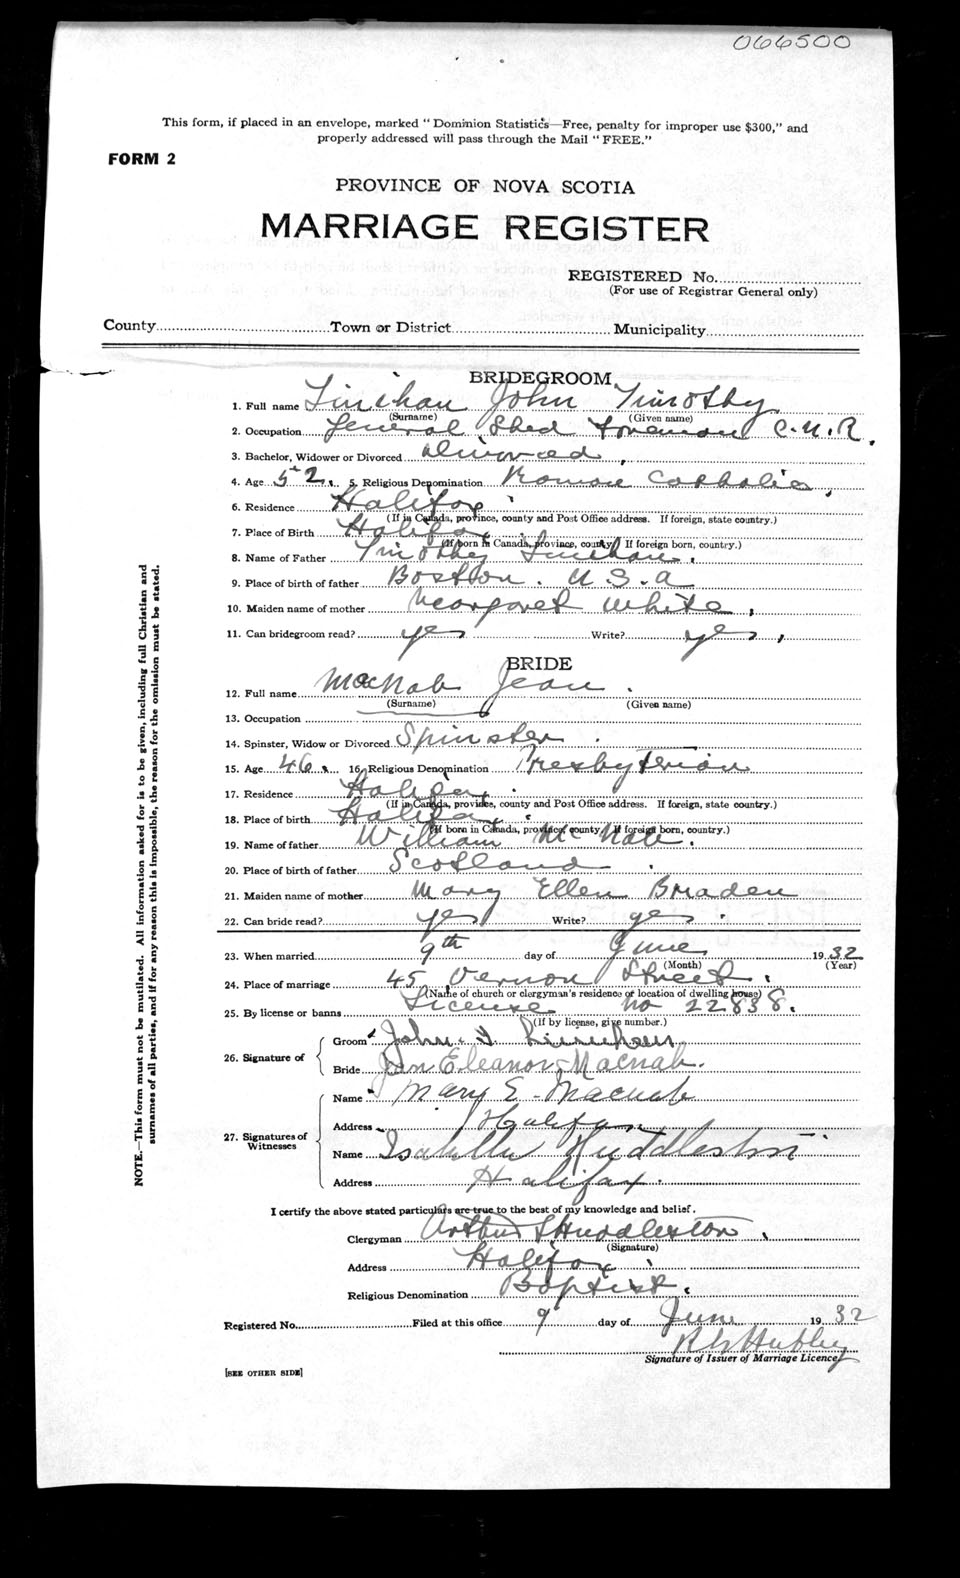 066500
This form, if placed in an envelope, marked " Dominion Statistics—Free, penalty for improper use $300," and
properly addressed will pass through the Mail " FREE."
FORM 2
PROVINCE OF NOVA SCOTIA
MARRIAGE REGISTER
REGISTERED No.
(For use of Registrar General only)
County Town or District Municipality
NOTE.—This form must not be mutilated. All information asked for is to be given, including full Christian and
surnames of all parties, and if for any reason this is impossible, the reason for the omission must be stated.
BRIDEGROOM
1. Full name Linehan John Timothy
(Surname) (Given name)
2. Occupation General Shed Foreman C.N.R.
3. Bachelor, Widower or Divorced divorced
4. Age 52 5. Religious Denomination Roman Catholic
6. Residence Halifax
(If in Canada, province, county and Post Office address. If foreign, state country.)
7. Place of Birth Halifax
(If born in Canada, province, county. If foreign born, country.)
8. Name of Father Timothy Linehan.
9. Place of birth of father Boston. U.S.A
10. Maiden name of mother Margaret White
11. Can bridegroom read? yes Write? yes
BRIDE
12. Full name MacNab Jean.
(Surname) (Given name)
13. Occupation
14. Spinster, Widow or Divorced Spinster
15. Age 46 16. Religious Denomination Presbyterian
17. Residence Halifax
(If in Canada, province, county and Post Office address. If foreign, state country.)
18. Place of birth Halifax
(If born in Canada, province, county. If foreign born, country.)
19. Name of father William McNab.
20. Place of birth of father Scotland
21. Maiden name of mother Mary Ellen Braden
22. Can bride read? yes Write? yes.
23. When married 9th day of June 1932
(Month) (Year)
24. Place of marriage 45 Vernon Street.
(Name of church or clergyman's residence or location of dwelling house)
25. By license or banns License no 22838.
(If by license, give number.)
26. Signature of
Groom John T Linehan
Bride Jean Eleanor Macnab.
27. Signatures of Witnesses
Name Mary E. Macnab
Address Halifax
Name Isabella Huddleston
Address Halifax.
I certify the above stated particulars are true to the best of my knowledge and belief.
Clergyman Arthur S Huddleston
(Signature)
Address Halifax
Religious Denomination Baptist.
Registered No. Filed at this office 9 day of June 1932
Hubley
Signature of Issuer of Marriage Licence
[SEE OTHER SIDE]